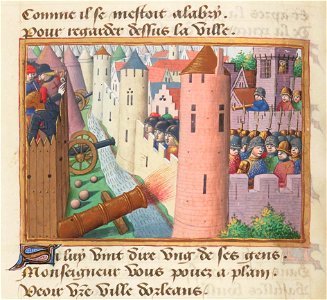 Comme il se mestoit alabry.
Pour regarder dessus la ville.
A luy vint dire vng de ses gens.
Monseigneur vous pouez a plain
Veoir vre ville dorleans.